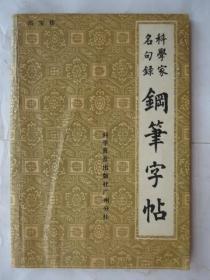 科學家
名句錄
鋼筆字帖
科学普及出版社广州分社